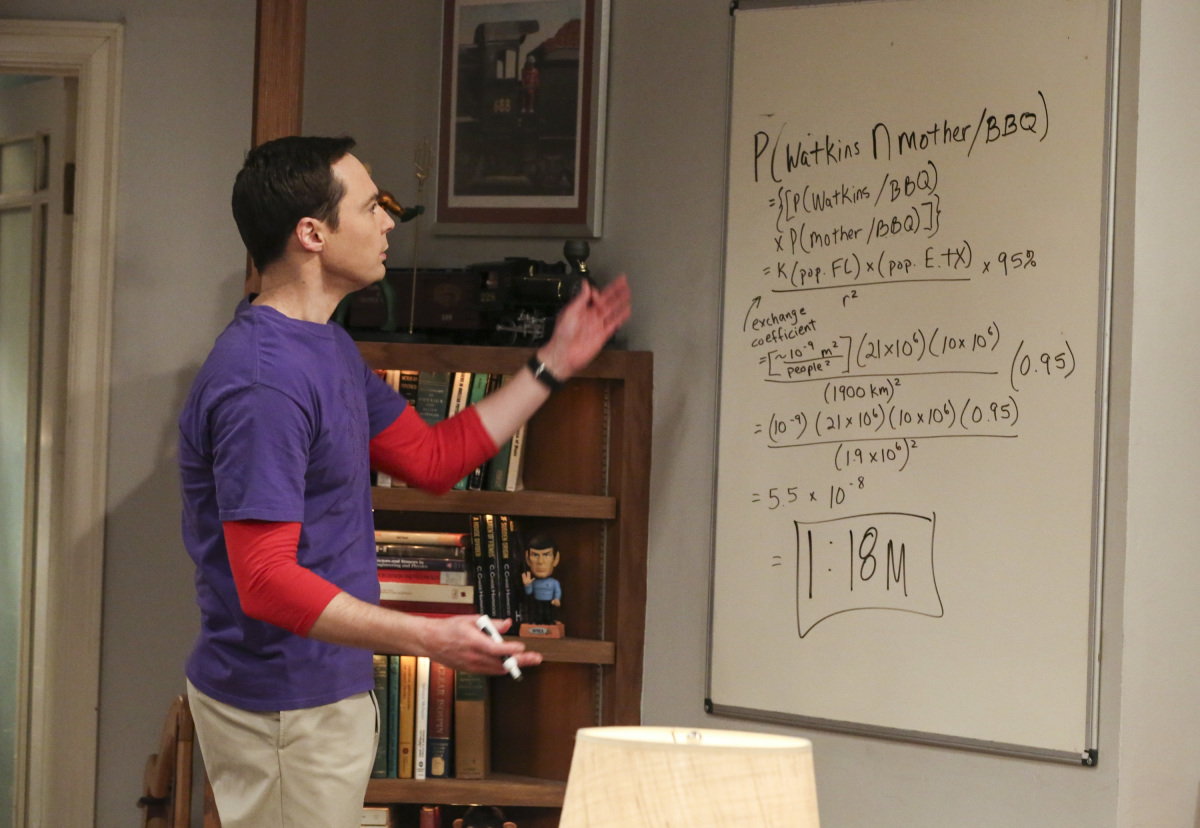 688
P(Watkins ∩ mother/BBQ)
={[P(Watkins/BBQ)
x P(mother/BBQ)]}
= K(pop. FL) x (pop. E. TX) x 95%
r²
exchange
coefficient
=[~10⁻⁹ m² / people²] (21x10⁶) (10x10⁶) (0.95)
(1900 km)²
= (10⁻⁹) (21 x 10⁶) (10 x 10⁶) (0.95)
(1.9 x10⁶)²
= 5.5 x 10⁻⁸
= 1:18M